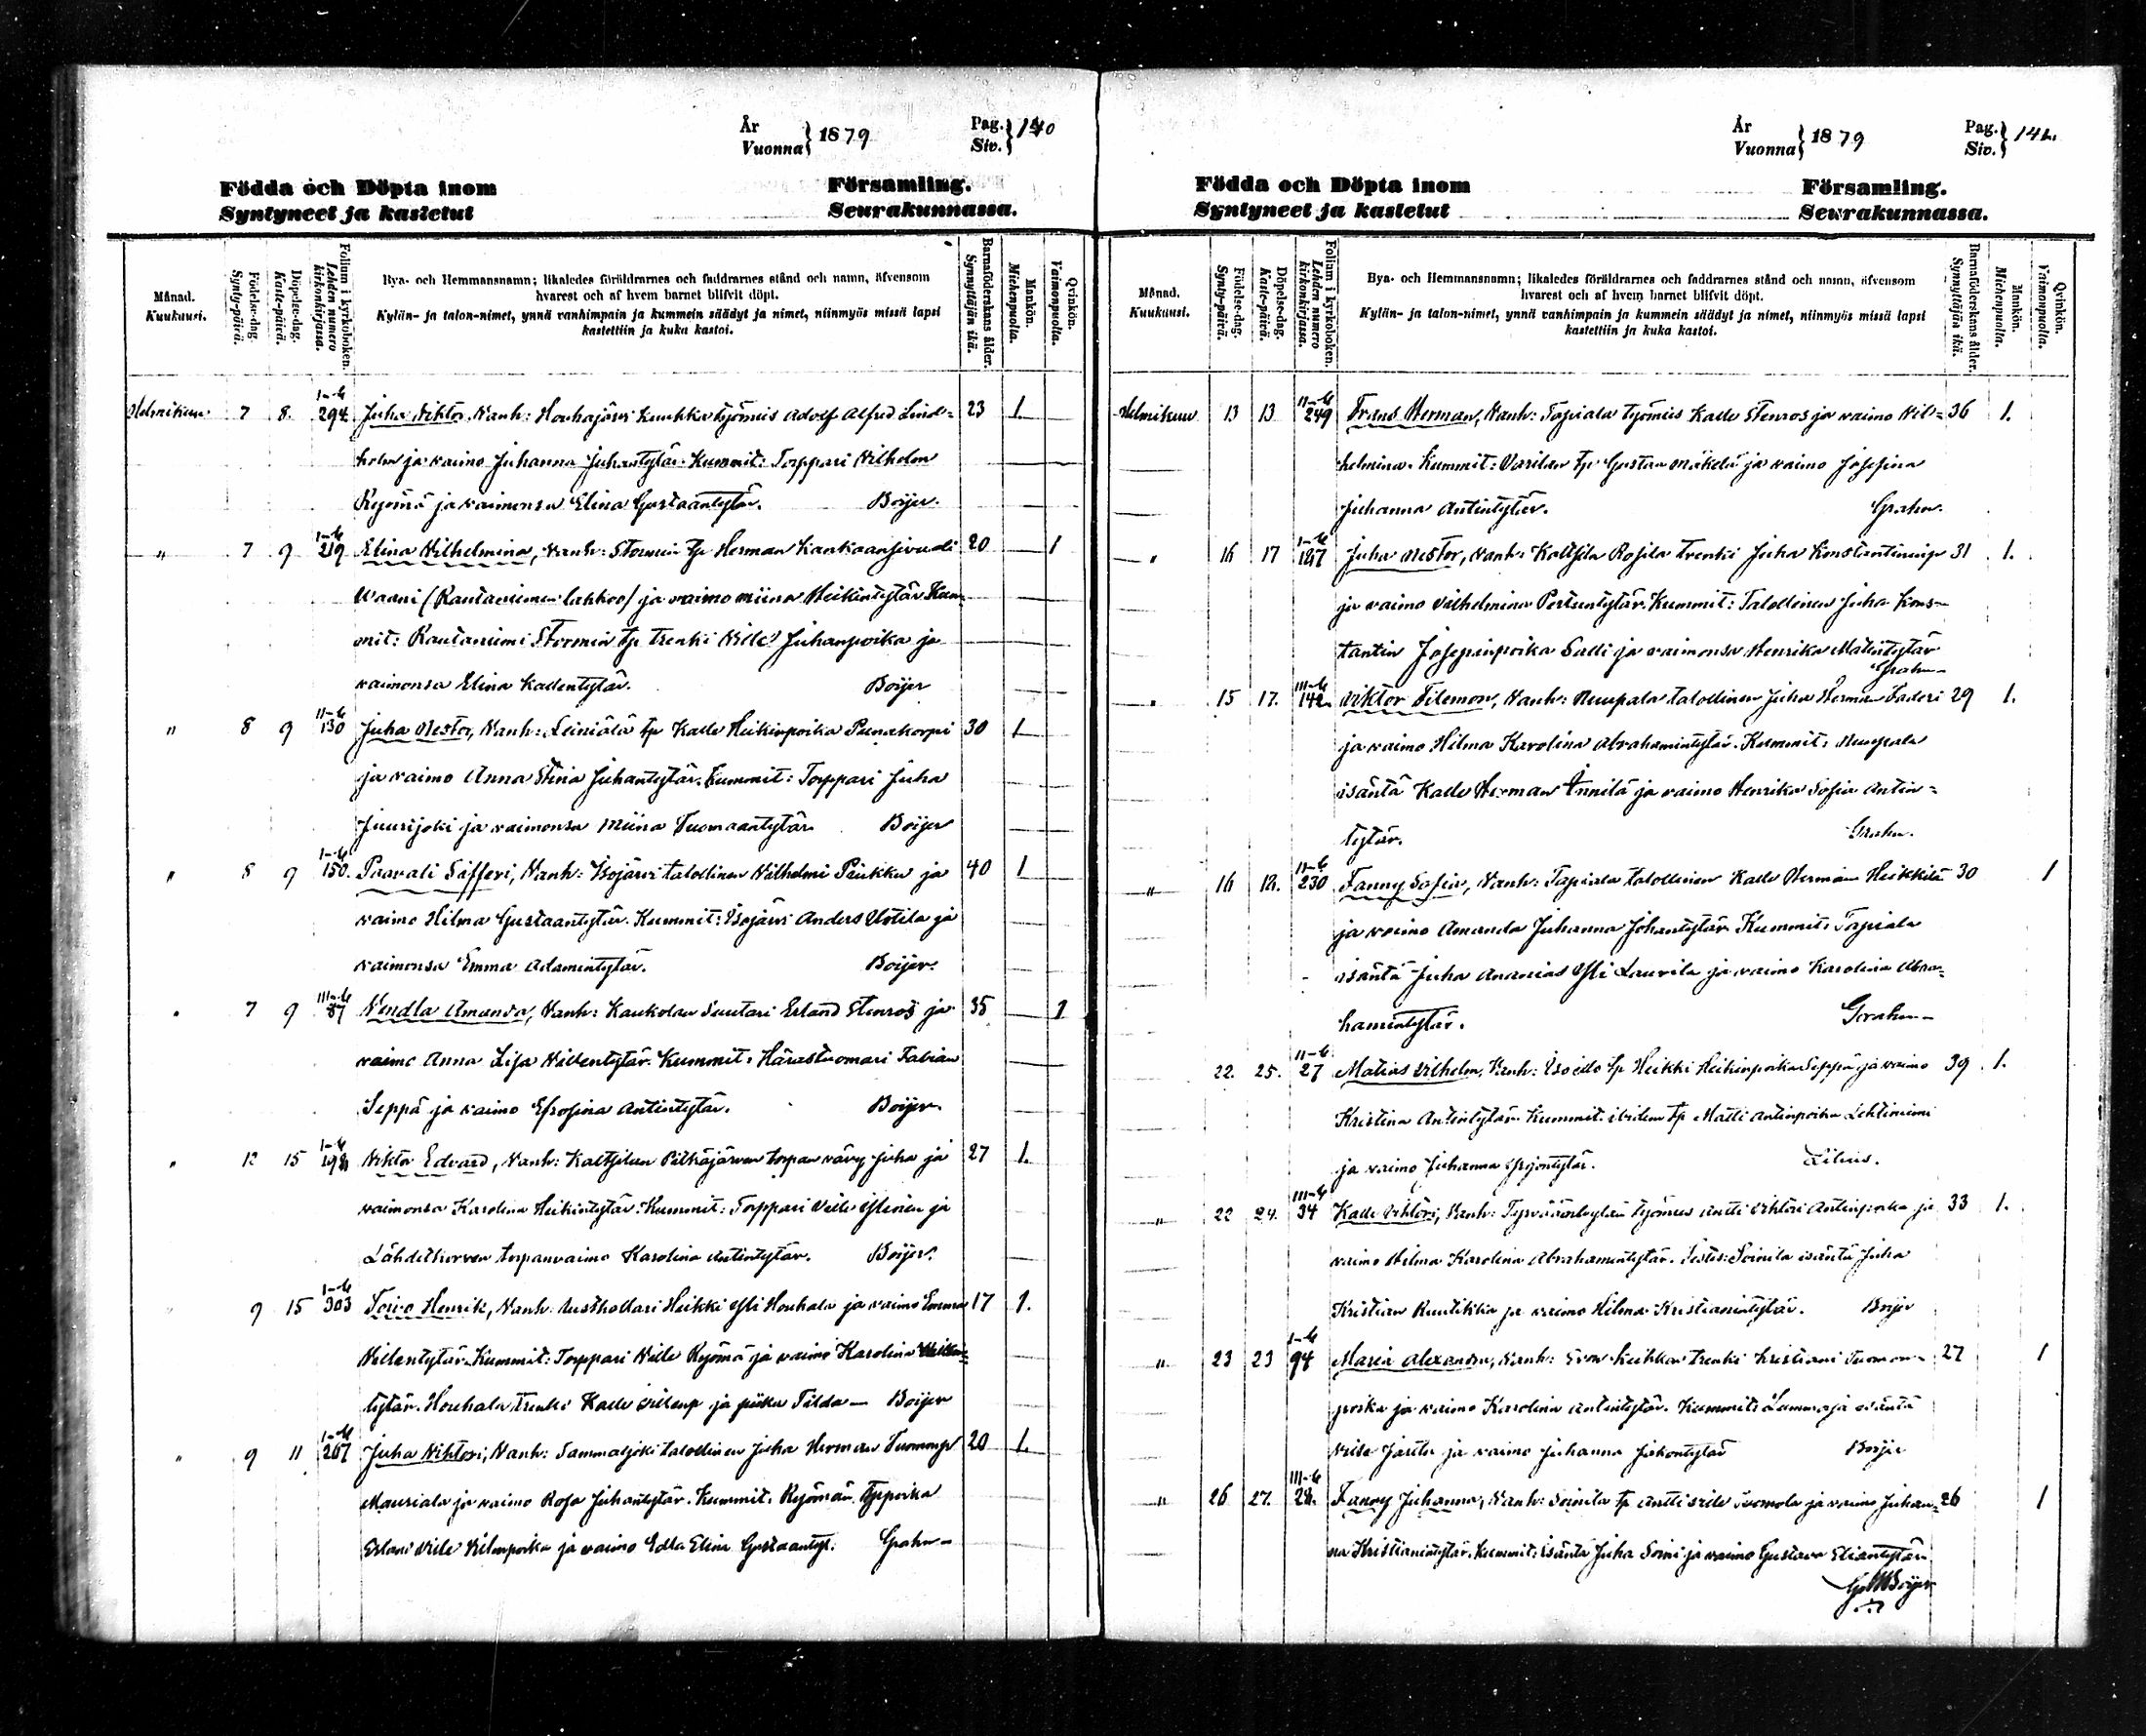 År
Vuonna } 1879
Pag.
Siv. } 140
Födda och Döpta inom Församling.
Syntyneet ja kastetut Seurakunnassa.
Månad.
Kuukausi.
Födelse-dag.
Synty-päivä.
Döpelse-dag.
Kaste-päivä.
Folium i kyrkoboken.
Lehden numero kirkonkirjassa.
Bya- och Hemmansnamn; likaledes föräldrarnes och faddrarnes stånd och namn, äfvensom
hvarest och af hvem barnet blifvit döpt.
Kylän- ja talon-nimet, ynnä vanhimpain ja kummein säädyt ja nimet, niinmyös missä lapsi
kastettiin ja kuka kastoi.
Barnaföderskans ålder.
Synnyttäjän ikä.
Mankön.
Miehenpuolta.
Qvinkön.
Vaimonpuolta.
Helmikuu 7 8 294 Juha Viktor, Vanh: Houhajärvi Kuukka työmies Adolf Alfred Lind= 23 1
holm ja vaimo Juhanna Juhantytär. Kummit: Torppari Vilhelm
Ryömä ja vaimonsa Elina Gustaantytär. Boijer.
" 7 9 219 Elina Vilhelmina, Vanh: Stormin tp Herman Kankaansivu eli 20 1
Waani (Rautaniemen lahkoo) ja vaimo Miina Heikintytär Kum=
mit: Rautaniemi Stormin tp trenki Ville Juhanpoika ja
vaimonsa Elina Kallentytär. Boijer
" 8 9 130 Juha Nestor, Vanh: Leiniälä tp Kalle Heikinpoika Punakorpi 30 1
ja vaimo Anna Stina Juhantytär. Kummit: Torppari Juha
Juurijoki ja vaimonsa Miina Tuomaantytär Boijer
" 8 9 150. Paavali Sifferi, Vanh: Isojärvi talollinen Vilhelmi Piukku ja 40 1
vaimo Hilma Gustaantytär. Kummit: Isojärvi Anders Uotila ja
vaimonsa Emma Adamintytär. Boijer.
" 7 9 87 Vendla Amanda, Vanh: Kaukolan Suutari Erland Stenros ja 35 1
vaimo Anna Lisa Villentytär. Kummit: Härastuomari Fabian
Seppä ja vaimo Efrosina Antintytär. Boijer.
" 12 15 198 Viktor Edvard, Vanh: Kaltsilan Pitkäjärven torpan vävy Juha ja 27 1.
vaimonsa Karolina Heikintytär. Kummit: Torppari Ville Ylinen ja
Lähdekorven torpanvaimo Karolina Antintytär. Boijer.
9 15 303 Toivo Henrik, Vanh: Rusthollari Heikki Yli Houhala ja vaimo Emma 17 1.
Villentytär. Kummit: Torppari Ville Ryömä ja vaimo Karolina
tytär. Houhala trenki Kalle Villenp ja piika Tilda Boijer
" 9 11 267 Juha Vihtori, Vanh: Sammaljoki talollinen Juha Herman Tuomonp 20 1.
Mauriala ja vaimo Rosa Juhantytär. Kummit: Ryömän tp poika
Erlani Ville Vilmpoika ja vaimo Edla Elina Gustaantyt. Grahn
År
Vuonna } 1879
Pag.
Siv. } 141.
Födda och Döpta inom Församling.
Syntyneet ja kastetut Seurakunnassa.
Månad.
Kuukausi.
Födelse-dag.
Synty-päivä.
Döpelse-dag.
Kaste-päivä.
Folium i kyrkoboken.
Lehden numero kirkonkirjassa.
Bya- och Hemmansnamn; likaledes föräldrarnes och faddrarnes stånd och namn, äfvensom
hvarest och af hvem barnet blifvit döpt.
Kylän- ja talon-nimet, ynnä vanhimpain ja kummein säädyt ja nimet, niinmyös missä lapsi
kastettiin ja kuka kastoi.
Barnaföderskans ålder.
Synnyttäjän ikä.
Mankön.
Miehenpuolta.
Qvinkön.
Vaimonpuolta.
Helmikuu 13 13 249 Frans Herman, Vanh: Tapiala työmies Kalle Stenros ja vaimo Vil= 36 1.
helmina. Kummit: Varilan tp Gustaa Mäkelä ja vaimo Josefina
Juhanna Antintytär. Grahn.
" 16 17 187 Juha Nestor, Vanh: Kaltsila Rosila trenki Juha Konstantininp 31 1.
ja vaimo Vilhelmina Pertuntytär. Kummit: Talollinen Juha Kons=
tantin Josepinpoika Salli ja vaimonsa Henrika Matintytär
Grahn
" 15 17. 142 Viktor Filemon, Vanh: Nuupala talollinen Juha Herman Faderi 29 1.
ja vaimo Hilma Karolina Abrahamintytär. Kummit: Nuupala
isäntä Kalle Herman Innilä ja vaimo Henrika Sofia Antin=
tytär. Grahn.
" 16 18. 230 Fanny Sofia, Vanh: Tapiala talollinen Kalle Herman Heikkilä 30 1
ja vaimo Amanda Juhanna Johantytär. Kummit: Tapiala
isäntä Juha Ananias Yli Laurila ja vaimo Karolina Abra=
hamintytär. Grahn
22. 25. 27 Matias Vilhelm, Vanh: Isoeilo tp Heikki Heikinpoika Seppä ja vaimo 39 1.
Kristina Antintytär. Kummit: ibidem tp Matti Antinpoika Lehtiniemi
ja vaimo Juhanna Yrjöntytär. Lilius.
" 22 24. 34 Kalle Vihtori, Vanh: Tyrväänkylän työmies Antti Vihtori Antinpoika ja 33 1.
vaimo Hilma Karolina Abrahamintytär. Testes: Soinila isäntä Juha
Kristian Ruutikka ja vaimo Hilma Kristianintytär. Boijer
" 23 23 94 Maria Alexandra, Vanh: trenki Kristiani Tuomon= 27 1
poika ja vaimo Karolina Antintytär. Kummit: isäntä
Ville ja vaimo Juhanna Jakontytär Boijer
" 26 27. 28. Fanny Juhanna, Vanh: Soinila tp Antti Ville Tuomola ja vaimo Juhan= 26 1
na Kristianintytär. Kummit: isäntä Juha Soini ja vaimo Gustava Eliantytär
Boijer